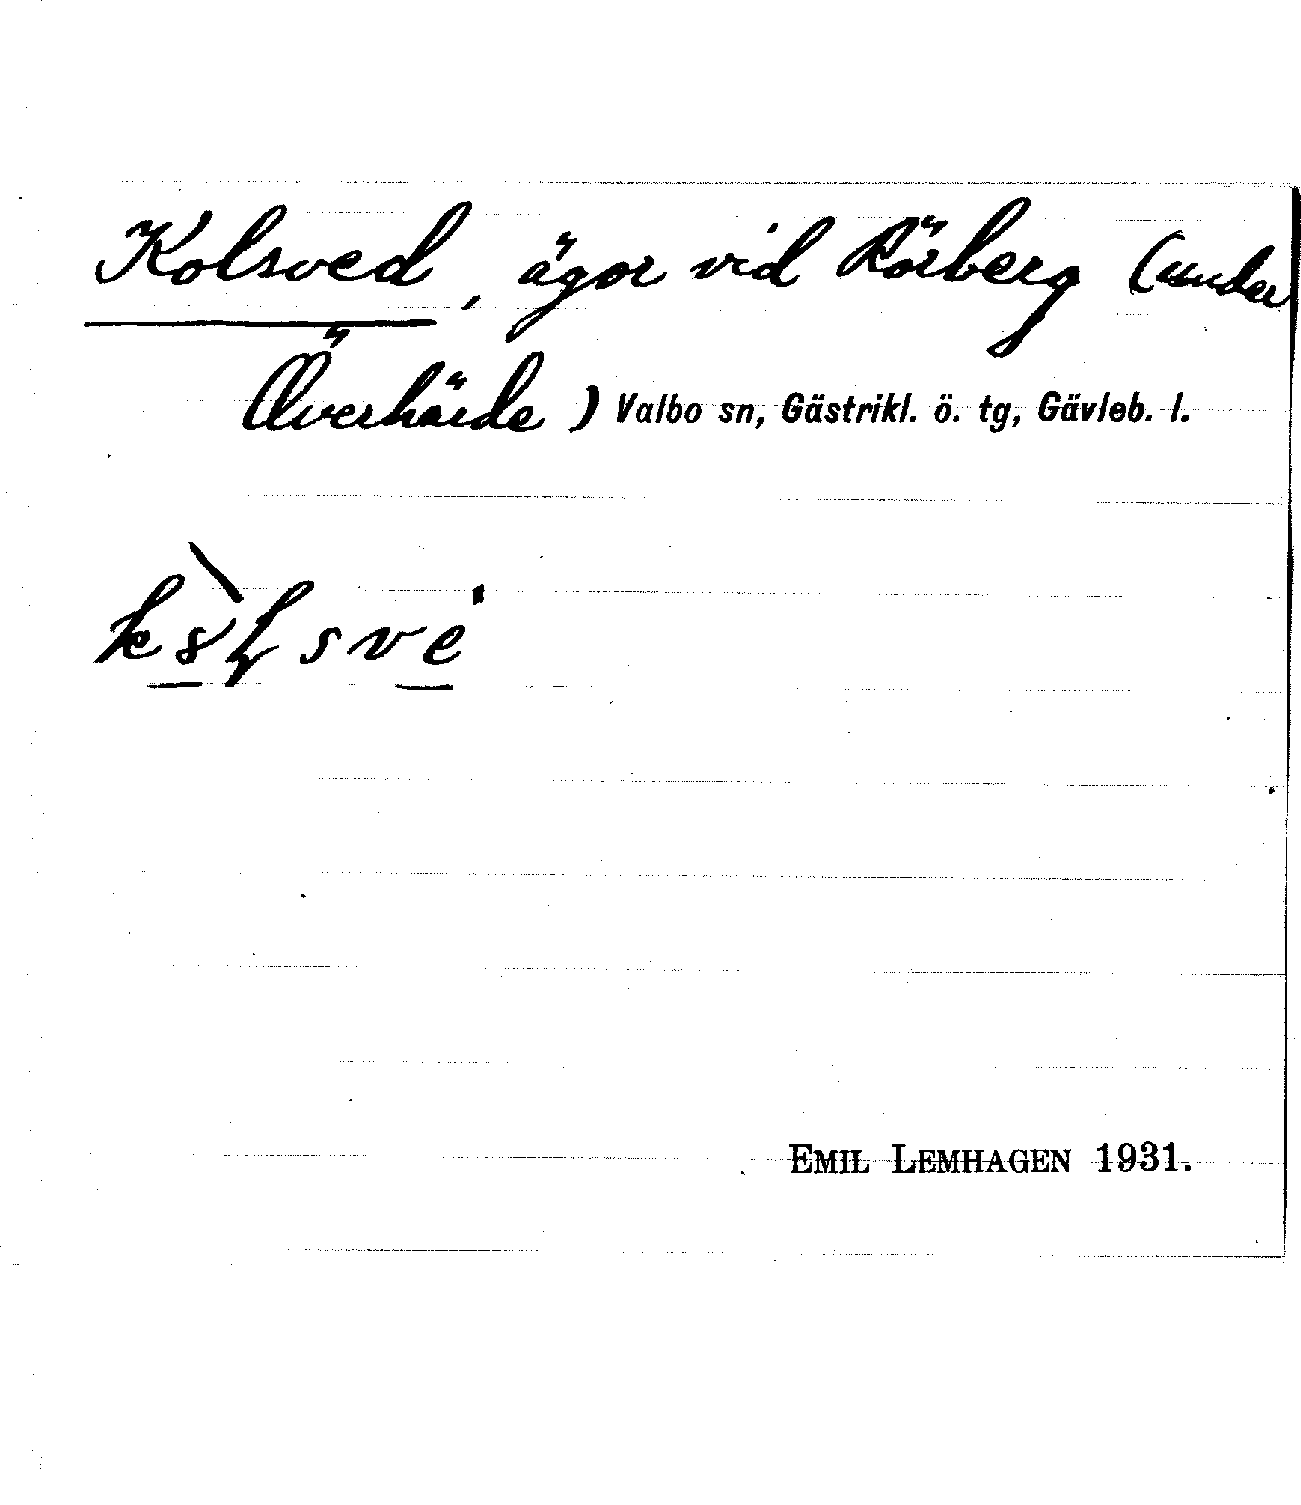 Kolsved, ägor vid Rörberg (under
Överhärde) Valbo sn, Gästrikl. ö. tg, Gävleb. l.
EMIL LEMHAGEN 1931.